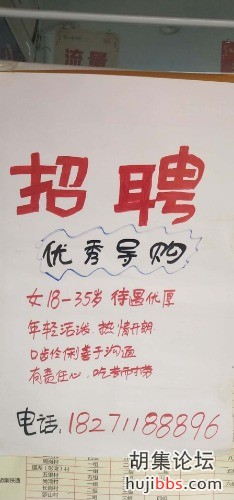 流量
招聘
优秀导购
女18-35岁 待遇优厚
年轻活泼、热情开朗
口齿伶俐善于沟通
有责任心、吃苦耐劳
电话:18271188896
胡集论坛
hujibbs.com